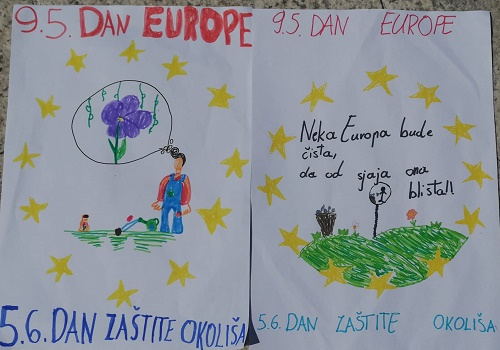 9.5. DAN EUROPE
5.6. DAN ZAŠTITE OKOLIŠA
9.5. DAN EUROPE
Neka Europa bude
čista,
da od sjaja ona
blista!!
5.6. DAN ZAŠTITE OKOLIŠA